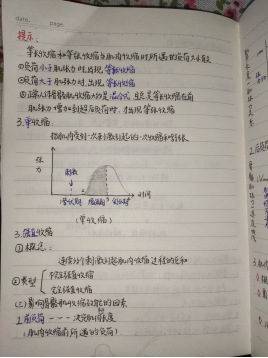 date. page.
提示:
等长收缩和等张收缩与肌肉收缩时所遇的负荷大小有关
①负荷小于肌张力时,出现等张收缩
②负荷大于肌张力时,出现等长收缩
③正常人体骨骼肌收缩大多是混合式,且总是等长收缩在前
肌张力增加到超后负荷时,才出现等张收缩
3.单收缩:
指肌肉受到一次刺激引起的一次收缩和舒张
张力
刺激
潜伏期 缩短期 舒张期
时间
(单收缩)
3.强直收缩
①概念:
连续的单刺激引起肌肉收缩过程的总和
②类型
不完全强直收缩
完全强直收缩
(三)影响骨骼肌收缩效能的因素
1.前负荷 --- 决定 初长度
(肌肉收缩前所遇的负荷)